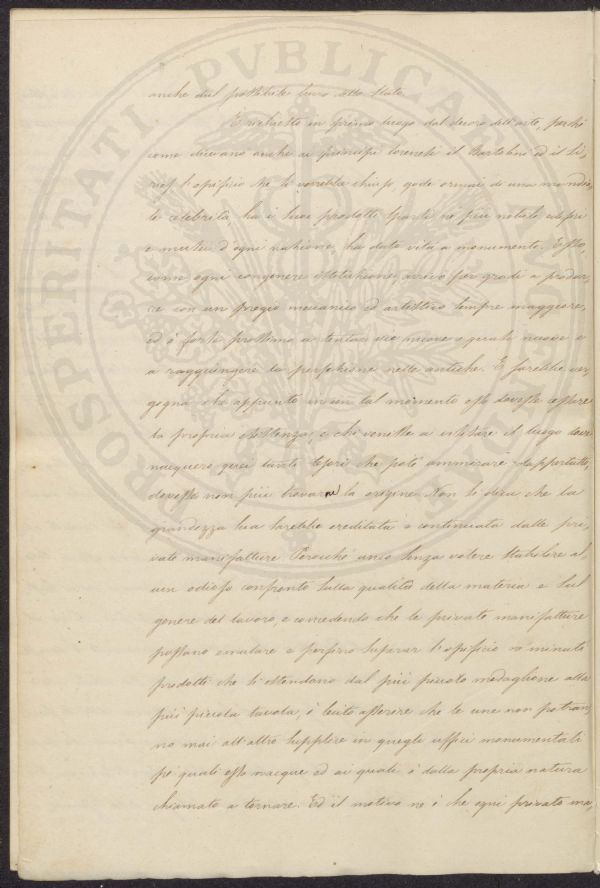 anche dal possibile suo allo Stato.
E richiesto in primo luogo dal decoro dell'arte, perchè
come dicevano anche ai principi lorenesi il Bartolini ed il Si,
riès l'opificio che si vorrebbe chiuso, gode ormai di una mondia,
le celebrità, ha i suoi prodotti sparsi ne' più notabili edifizi
e musei d'ogni nazione, ha dato vita a monumenti. Esso,
come ogni congenere istituzione, arrivò per gradi a produr,
re con un pregio meccanico ed artistico sempre maggiore,
ed è forse prossimo a tentar vie nuove e
a raggiungere la perfezione nelle antiche. E sarebbe ver,
gogna che appunto in un tal momento esso dovesse cessare
la propria esistenza, e chi venisse a visitare il luogo dove
nacquero quei tanti tesori che potè ammirare dappertutto,
dovesse non più trovarne la origine. Non si dica che la
grandezza sua sarebbe ereditata e continuata dalle pri,
vate manifatture. Perocchè anco senza volere stabilire al,
cun odioso confronto sulla qualità della materia e sul
genere del lavoro, e concedendo che le private manifatture
possano emulare e persino superar l'opificio ne' minuti
prodotti che si estendono dal più piccolo medaglione alla
più piccola tavola, è lecito asserire che le une non potran,
no mai all'altro supplire in quegli uffici monumentali
pe' quali esso nacque ed ai quali è dalla propria natura
chiamato a tornare. Ed il motivo ne è che ogni privata ma,
PROSPERITATI PVBLICAE AVGENDAE